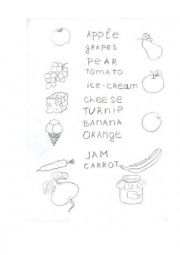 APPLE
GRAPES
PEAR
TOMATO
ice-cream
CHEESE
TURNIP
BANANA
ORANGE
JAM
CARROT